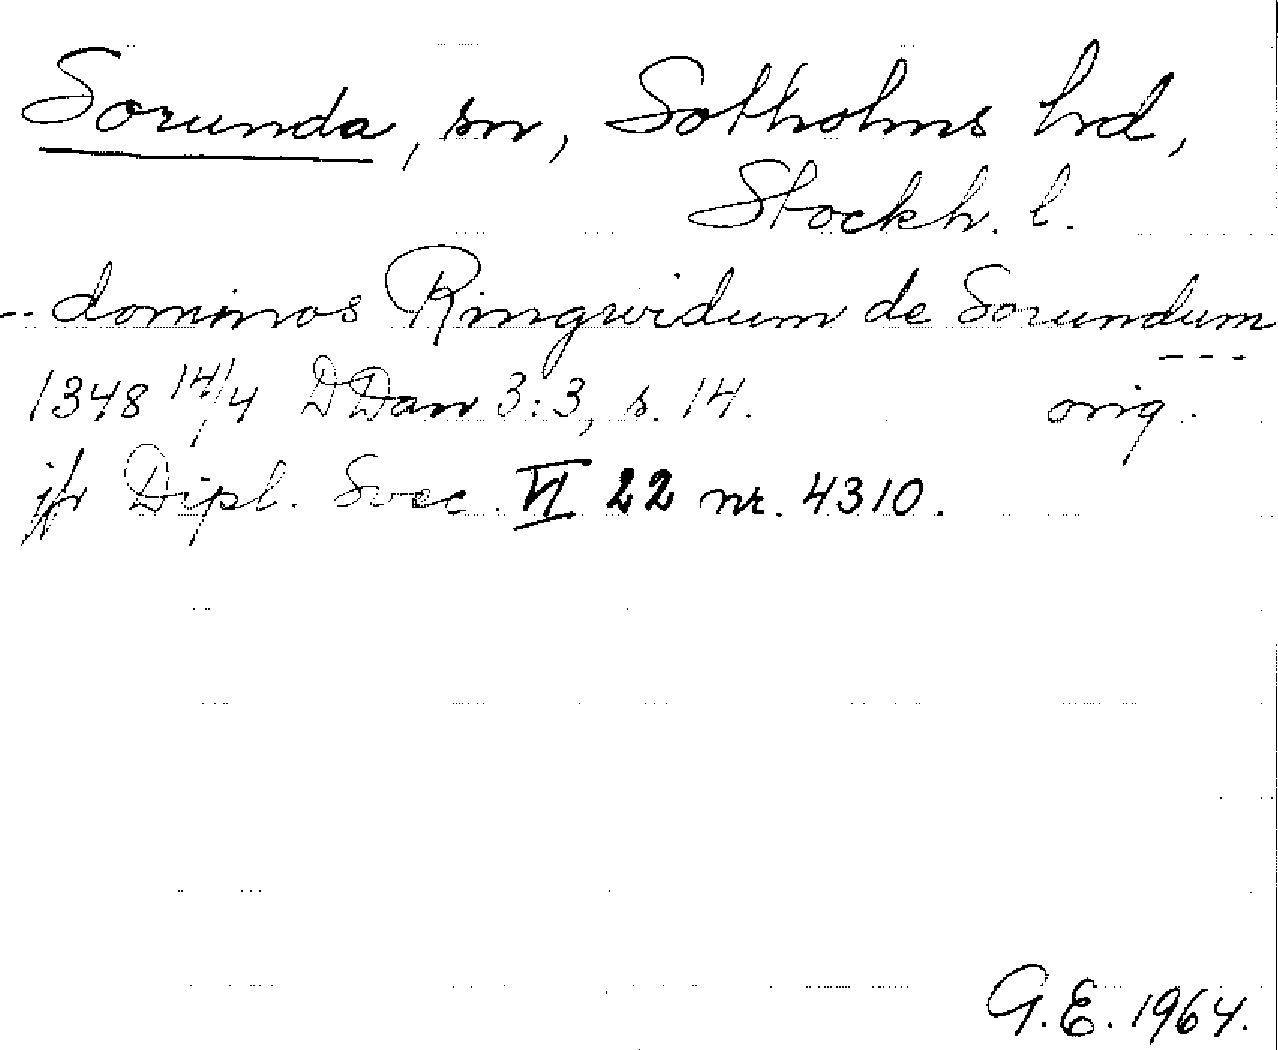 Sorunda, sn, Sotholms hrd,
Stockh. l.
-- dominos Ringwidum de Sorundum
---
1348 14/4 DDan 3:3, s. 14. orig.
jfr Dipl. Svec. VI 22 nr. 4310.
G.E. 1964.